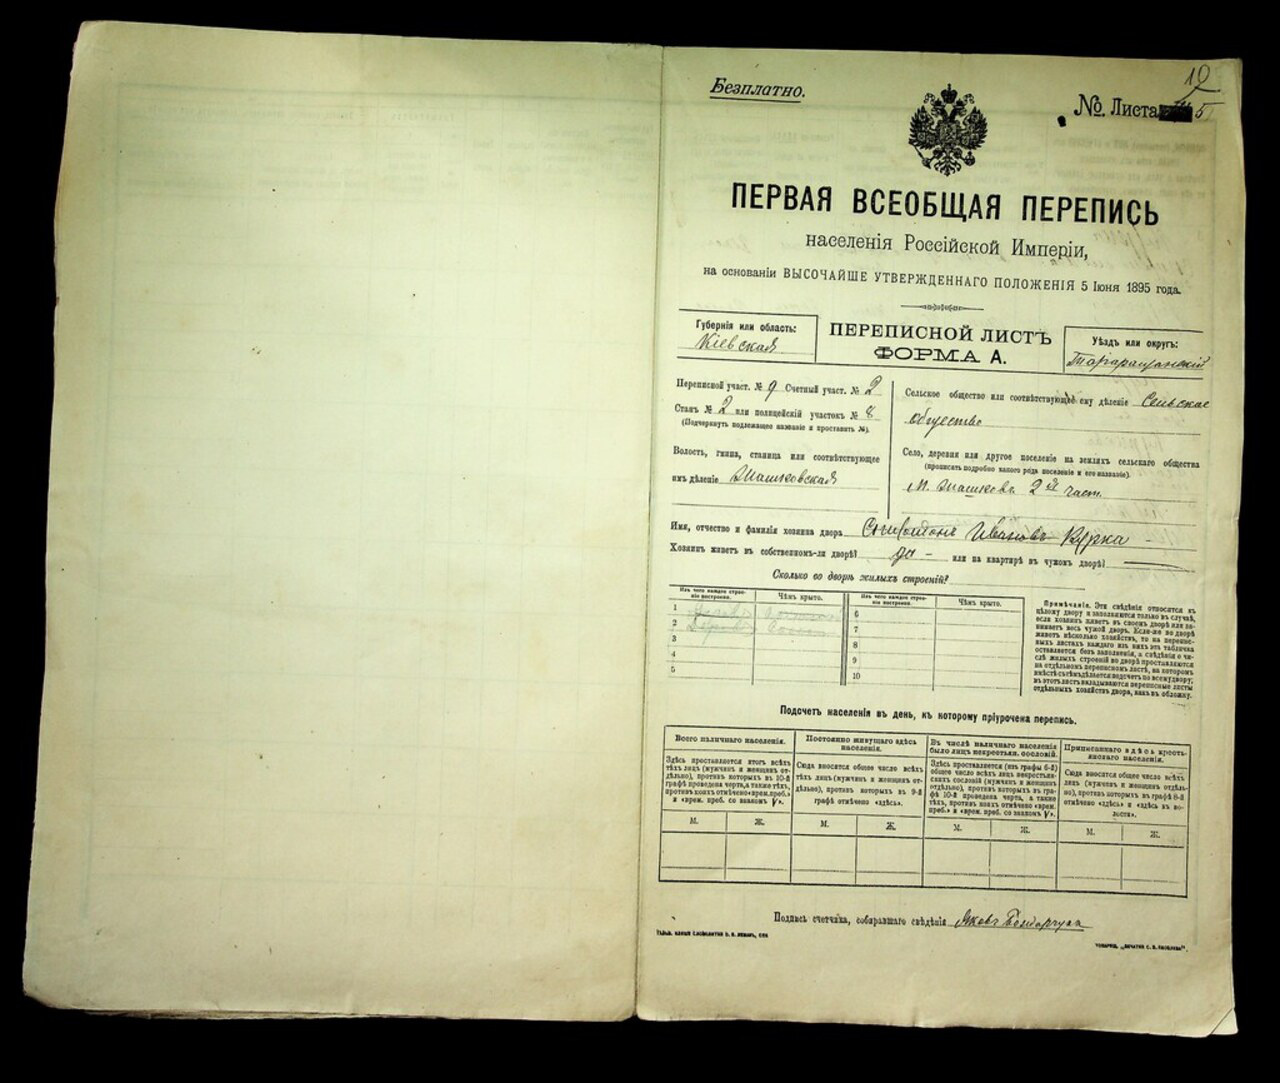 Безплатно.
10
№ Листа 5
ПЕРВАЯ ВСЕОБЩАЯ ПЕРЕПИСЬ
населенія Россійской Имперіи,
на основаніи ВЫСОЧАЙШЕ УТВЕРЖДЕННАГО ПОЛОЖЕНІЯ 5 Іюня 1895 года.
Губернія или область:
Кіевская
ПЕРЕПИСНОЙ ЛИСТЪ
ФОРМА А.
Уѣздъ или округъ:
Таращанскій
Переписной участ. № 9 Счетный участ. № 2
Станъ № 2 или полицейскій участокъ № 8
(Подчеркнуть подлежащее названіе и проставить №).
Волость, гмина, станица или соотвѣтствующее
имъ дѣленіе
Сельское общество или соотвѣтствующее ему дѣленіе Сельское
общество
Село, деревня или другое поселеніе на земляхъ сельскаго общества
(прописать подробно какого рода поселеніе и его названіе).
М. 2й част.
Имя, отчество и фамилія хозяина двора Ивановъ Курка
Хозяинъ живетъ въ собственномъ-ли дворѣ? да - или на квартирѣ въ чужомъ дворѣ?
Сколько во дворѣ жилыхъ строеній?
Изъ чего каждое строеніе построено. Чѣмъ крыто. Изъ чего каждое строеніе построено. Чѣмъ крыто.
1 6
2 7
3 8
4 9
5 10
Примѣчаніе. Эти свѣдѣнія относятся къ
цѣлому двору и заполняются только въ случаѣ,
если хозяинъ живетъ въ своемъ дворѣ или занимаетъ
весь чужой дворъ. Если-же во дворѣ
живетъ нѣсколько хозяйствъ, то на переписныхъ
листахъ каждаго изъ нихъ эта табличка
оставляется безъ заполненія, а свѣдѣнія о числѣ
жилыхъ строеній во дворѣ проставляются
на отдѣльномъ переписномъ листѣ, на которомъ
вмѣстѣ съ тѣмъ дѣлается подсчетъ по всему двору;
въ этотъ листъ вкладываются переписные листы
отдѣльныхъ хозяйствъ двора, какъ въ обложку.
Подсчетъ населенія въ день, къ которому пріурочена перепись.
Всего наличнаго населенія.
Здѣсь проставляется итогъ всѣхъ
тѣхъ лицъ (мужчинъ и женщинъ отдѣльно),
противъ которыхъ въ 10-й
графѣ проведена черта, а также тѣхъ,
противъ коихъ отмѣчено «врем. преб.»
и «врем. преб. со знакомъ V».
Постоянно живущаго здѣсь
населенія.
Сюда вносится общее число всѣхъ
тѣхъ лицъ (мужчинъ и женщинъ отдѣльно),
противъ которыхъ въ 9-й
графѣ отмѣчено «здѣсь».
Въ числѣ наличнаго населенія
было лицъ некрестьян. сословій.
Здѣсь проставляется (изъ графы 6-й)
общее число всѣхъ лицъ некрестьянскихъ
сословій (мужчинъ и женщинъ
отдѣльно), противъ которыхъ въ графѣ
10-й проведена черта, а также
тѣхъ, противъ коихъ отмѣчено «врем.
преб.» и «врем. преб. со знакомъ V».
Приписаннаго здѣсь крестьянскаго
населенія.
Сюда вносится общее число всѣхъ
лицъ (мужчинъ и женщинъ отдѣльно),
противъ которыхъ въ графѣ 8-й
отмѣчено «здѣсь» и «здѣсь въ волости».
М. Ж. М. Ж. М. Ж. М. Ж.
Подпись счетчика, собиравшаго свѣдѣнія Яковъ